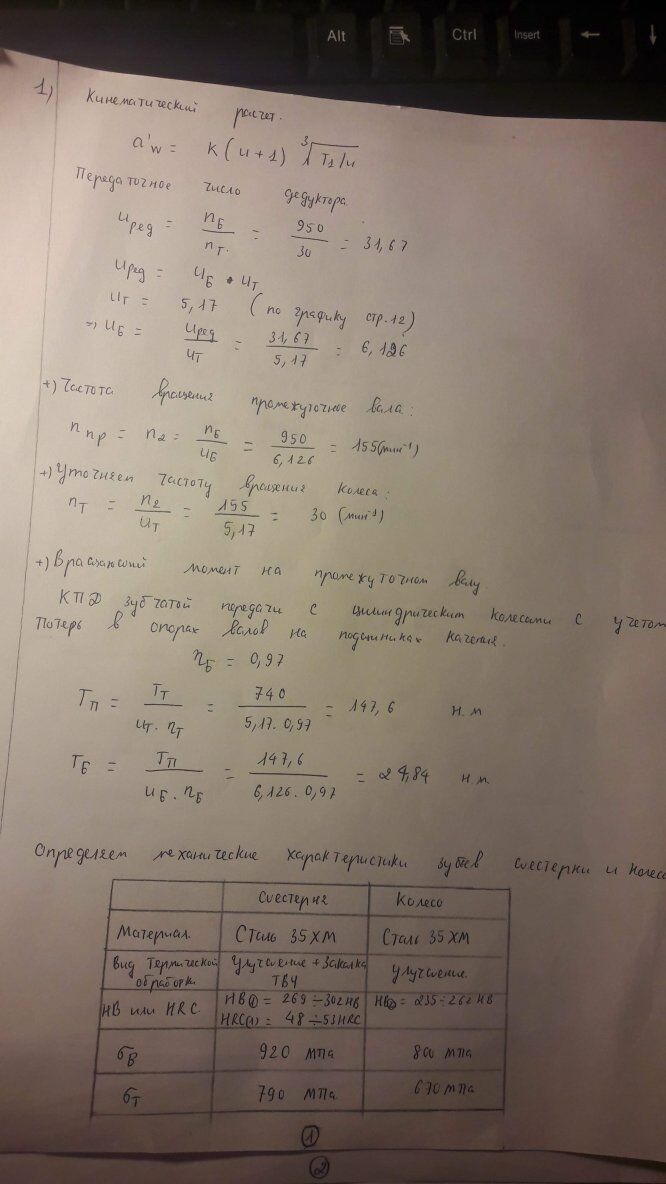 Alt
Ctrl
Insert
←
↓
1) Кинематический расчет.
a'w = K(u+1) ∛T1/u
Передаточное число дедуктора
uред = nБ/nТ. = 950/30 = 31,67
uред = uБ • uТ
uТ = 5,17 (по графику стр.12)
=> uБ = uред/uТ = 31,67/5,17 = 6,126
+) Частота вращения промежуточное вала:
nпр = n2 = nБ/uБ = 950/6,126 = 155(мин⁻¹)
+) Уточняем частоту вращения колеса:
nТ = n2/uТ = 155/5,17 = 30 (мин⁻¹)
+) Вращающий момент на промежуточном валу
КПД зубчатой передачи с цилиндрическим колесами с учетом
потерь в опорах валов на подшипниках качения.
ηБ = 0,97
TП = TТ/uТ. ηТ = 740/5,17. 0,97 = 147,6 н.м
TБ = TП/uБ. ηБ = 147,6/6,126. 0,97 = 24,84 н.м.
Определяем механические характеристики зубьев шестерни и колеса
Шестерня Колесо
Материал. Сталь 35ХМ Сталь 35ХМ
Вид Термической обработки Улучшение + Закалка ТВЧ Улучшение.
HB или HRC. HB(1) = 269÷302HB HB(2) = 235÷262 HB
HRC(1) = 48÷53HRC
σВ 920 мПа 800 мПа
σТ 790 мПа 670 мПа
1
2